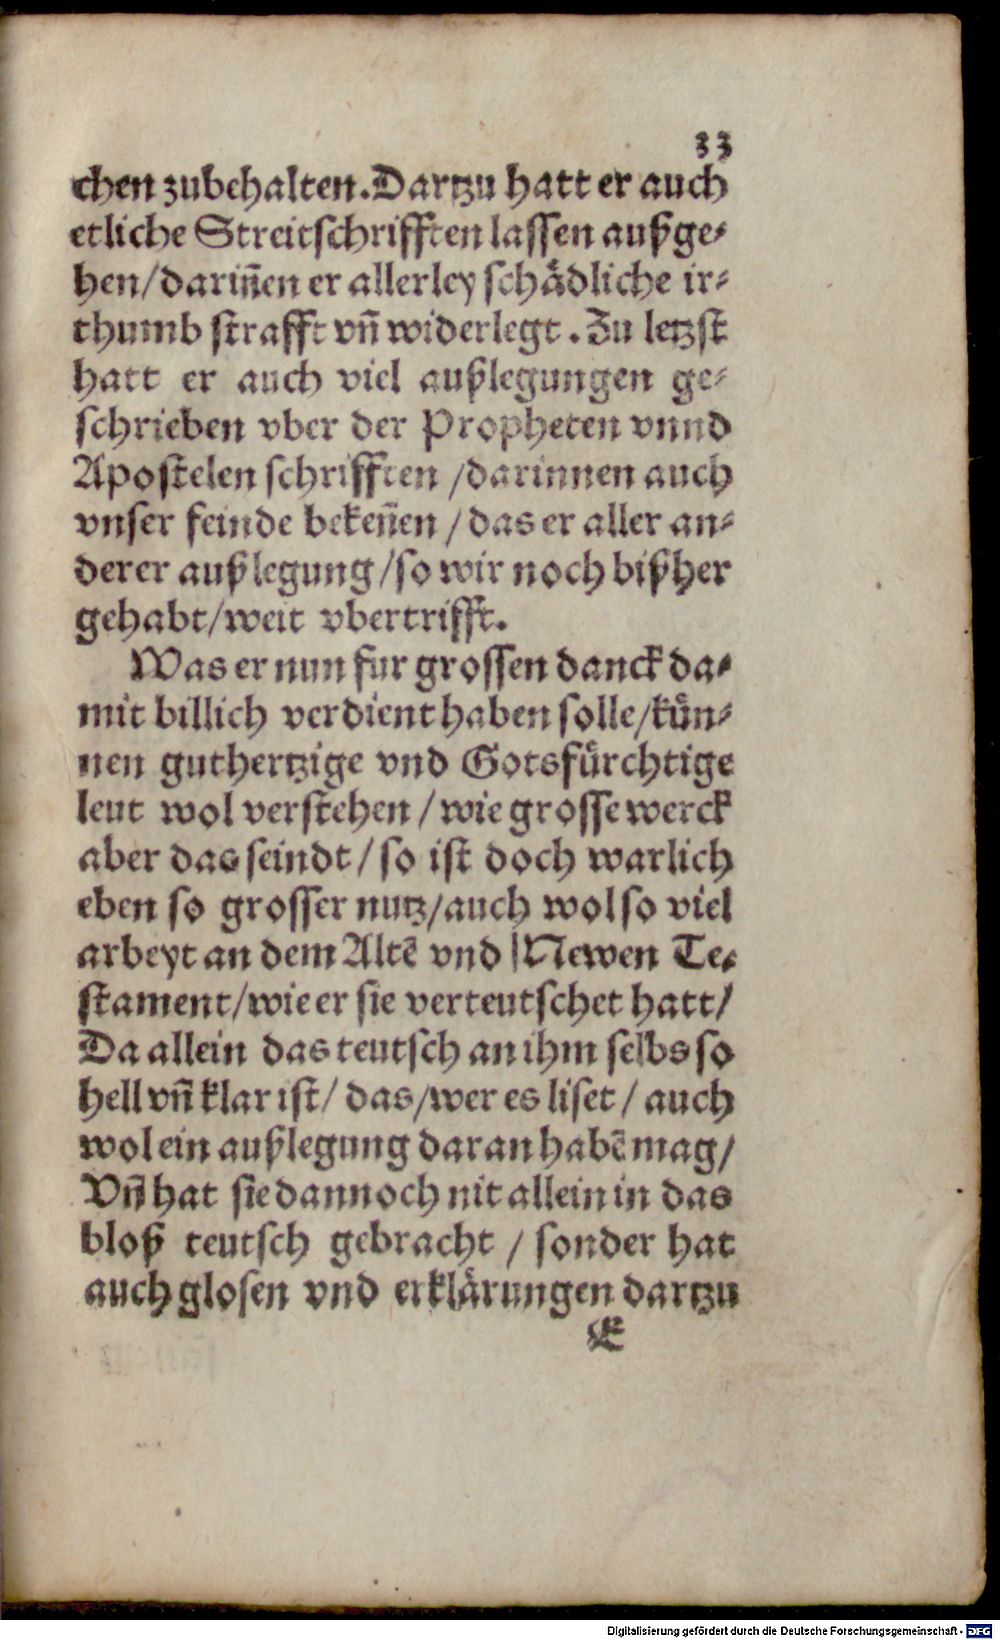 33
chen zubehalten. Dartzu hatt er auch
etliche Streitschrifften lassen außge-
hen/ darin̄en er allerley schädliche ir-
thumb strafft vn̄ widerlegt. Zu letzst
hatt er auch viel außlegungen ge-
schrieben vber der Propheten vnnd
Apostelen schrifften / darinnen auch
vnser feinde beken̄en / das er aller an-
derer außlegung / so wir noch bißher
gehabt/ weit vbertrifft.
Was er nun fur grossen danck da-
mit billich verdient haben solle/ kün-
nen guthertzige vnd Gotsfürchtige
leut wol verstehen / wie grosse werck
aber das seindt / so ist doch warlich
eben so grosser nutz/ auch wol so viel
arbeyt an dem Altē vnd Newen Te-
stament/ wie er sie verteutschet hatt/
Da allein das teutsch an ihm selbs so
hell vn̄ klar ist/ das/ wer es liset / auch
wol ein außlegung daran habē mag/
Vn̄ hat sie dannoch nit allein in das
bloß teutsch gebracht / sonder hat
auch glosen vnd erklärungen dartzu
E
Digitalisierung gefördert durch die Deutsche Forschungsgemeinschaft - DFG